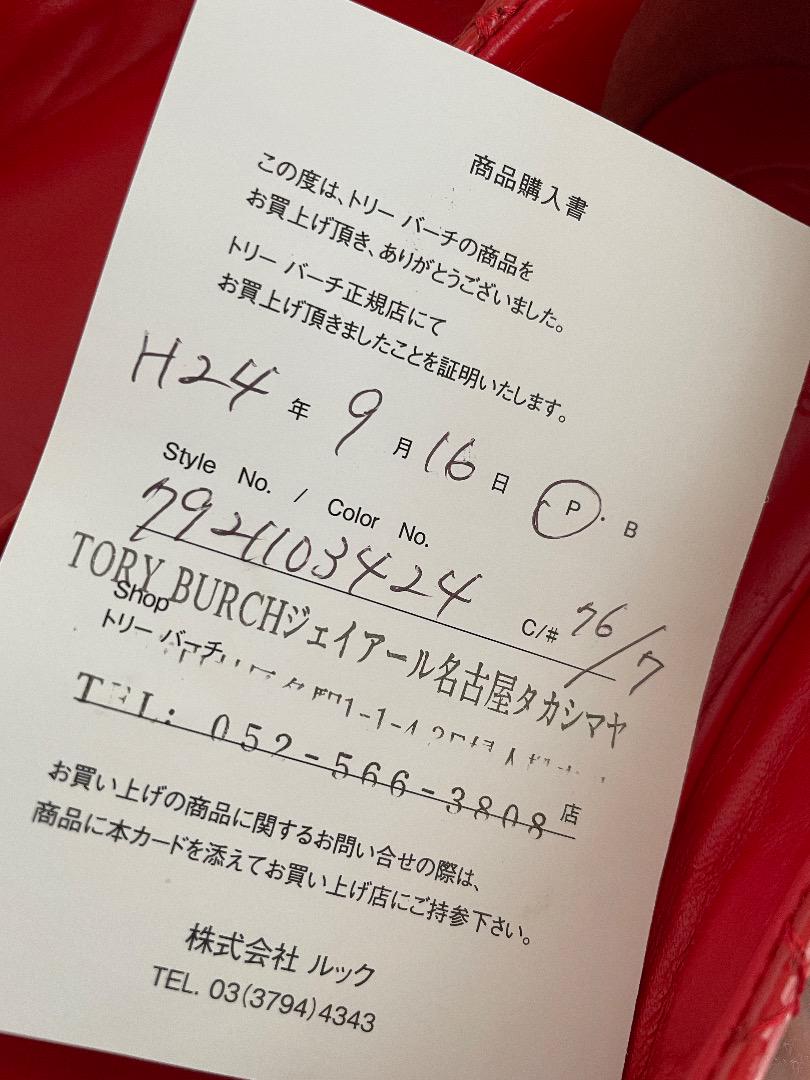 商品購入書
この度は、トリー バーチの商品を
お買上げ頂き、ありがとうございました。
トリー バーチ正規店にて
お買上げ頂きましたことを証明いたします。
H24 年 9 月 16 日 P・B
Style No. / Color No.
7921103424 C/# 76/7
TORY BURCHジェイアール名古屋タカシマヤ
Shop
トリー バーチ
1-1-4
TEL: 052-566-3808 店
お買い上げの商品に関するお問い合せの際は、
商品に本カードを添えてお買い上げ店にご持参下さい。
株式会社 ルック
TEL. 03(3794)4343